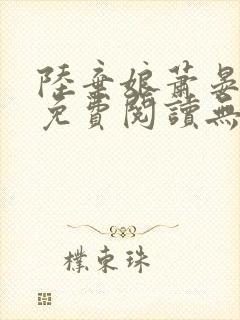 陸棄娘蕭晏
免費閱讀無
樸東珠